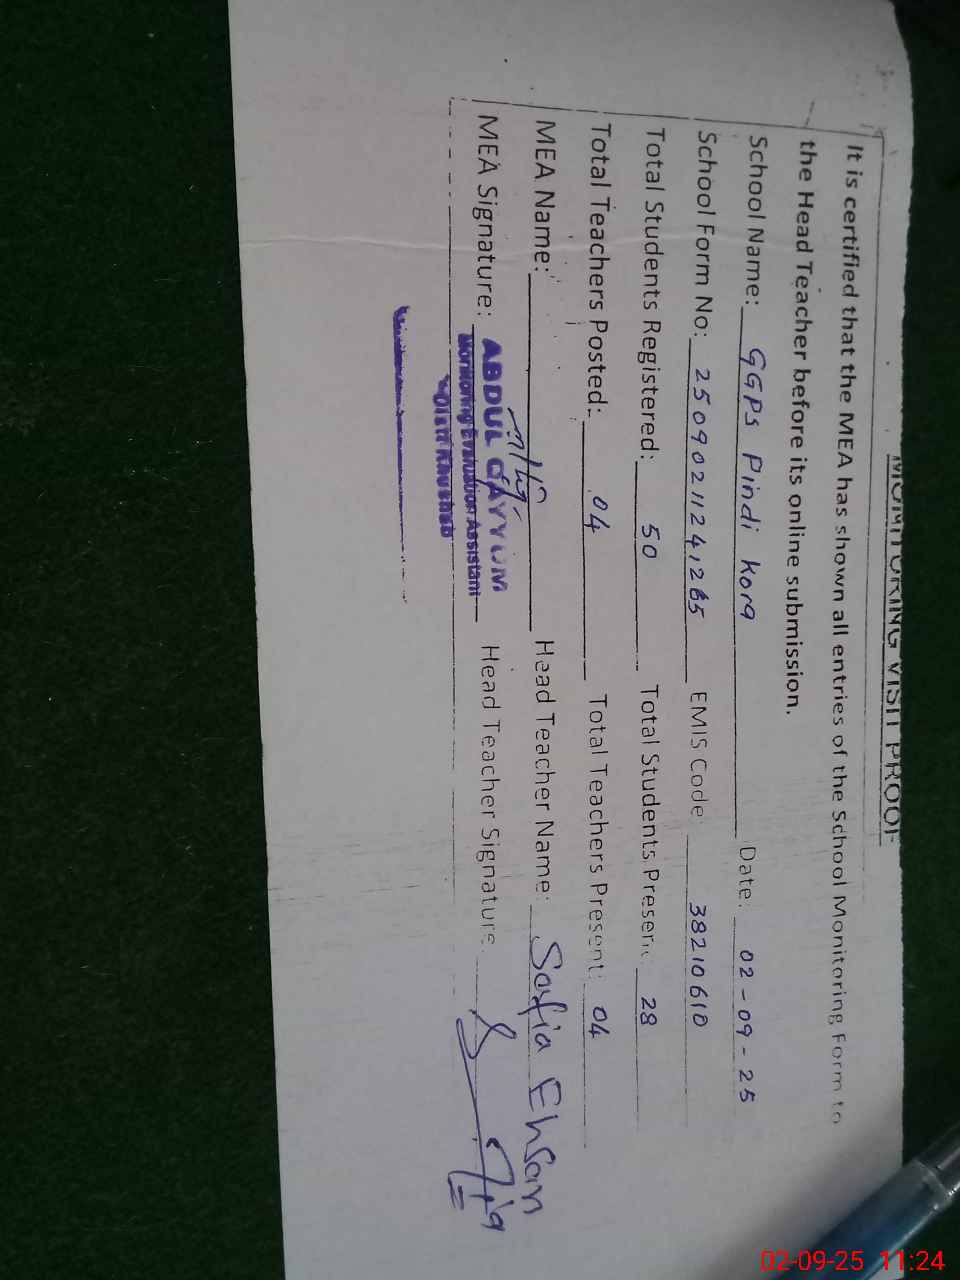 MONITORING VISIT PROOF
It is certified that the MEA has shown all entries of the School Monitoring Form to
the Head Teacher before its online submission.
School Name: GGPS Pindi Kora Date: 02-09-25
School Form No: EMIS Code: 38210610
Total Students Registered: 50 Total Students Present: 28
Total Teachers Posted: 04 Total Teachers Present: 04
MEA Name: Head Teacher Name: Safia Ehsan
MEA Signature: ABDUL QAYYUM Head Teacher Signature:
Monitoring Evaluation Assistant
Distt Khushab
02-09-25 11:24